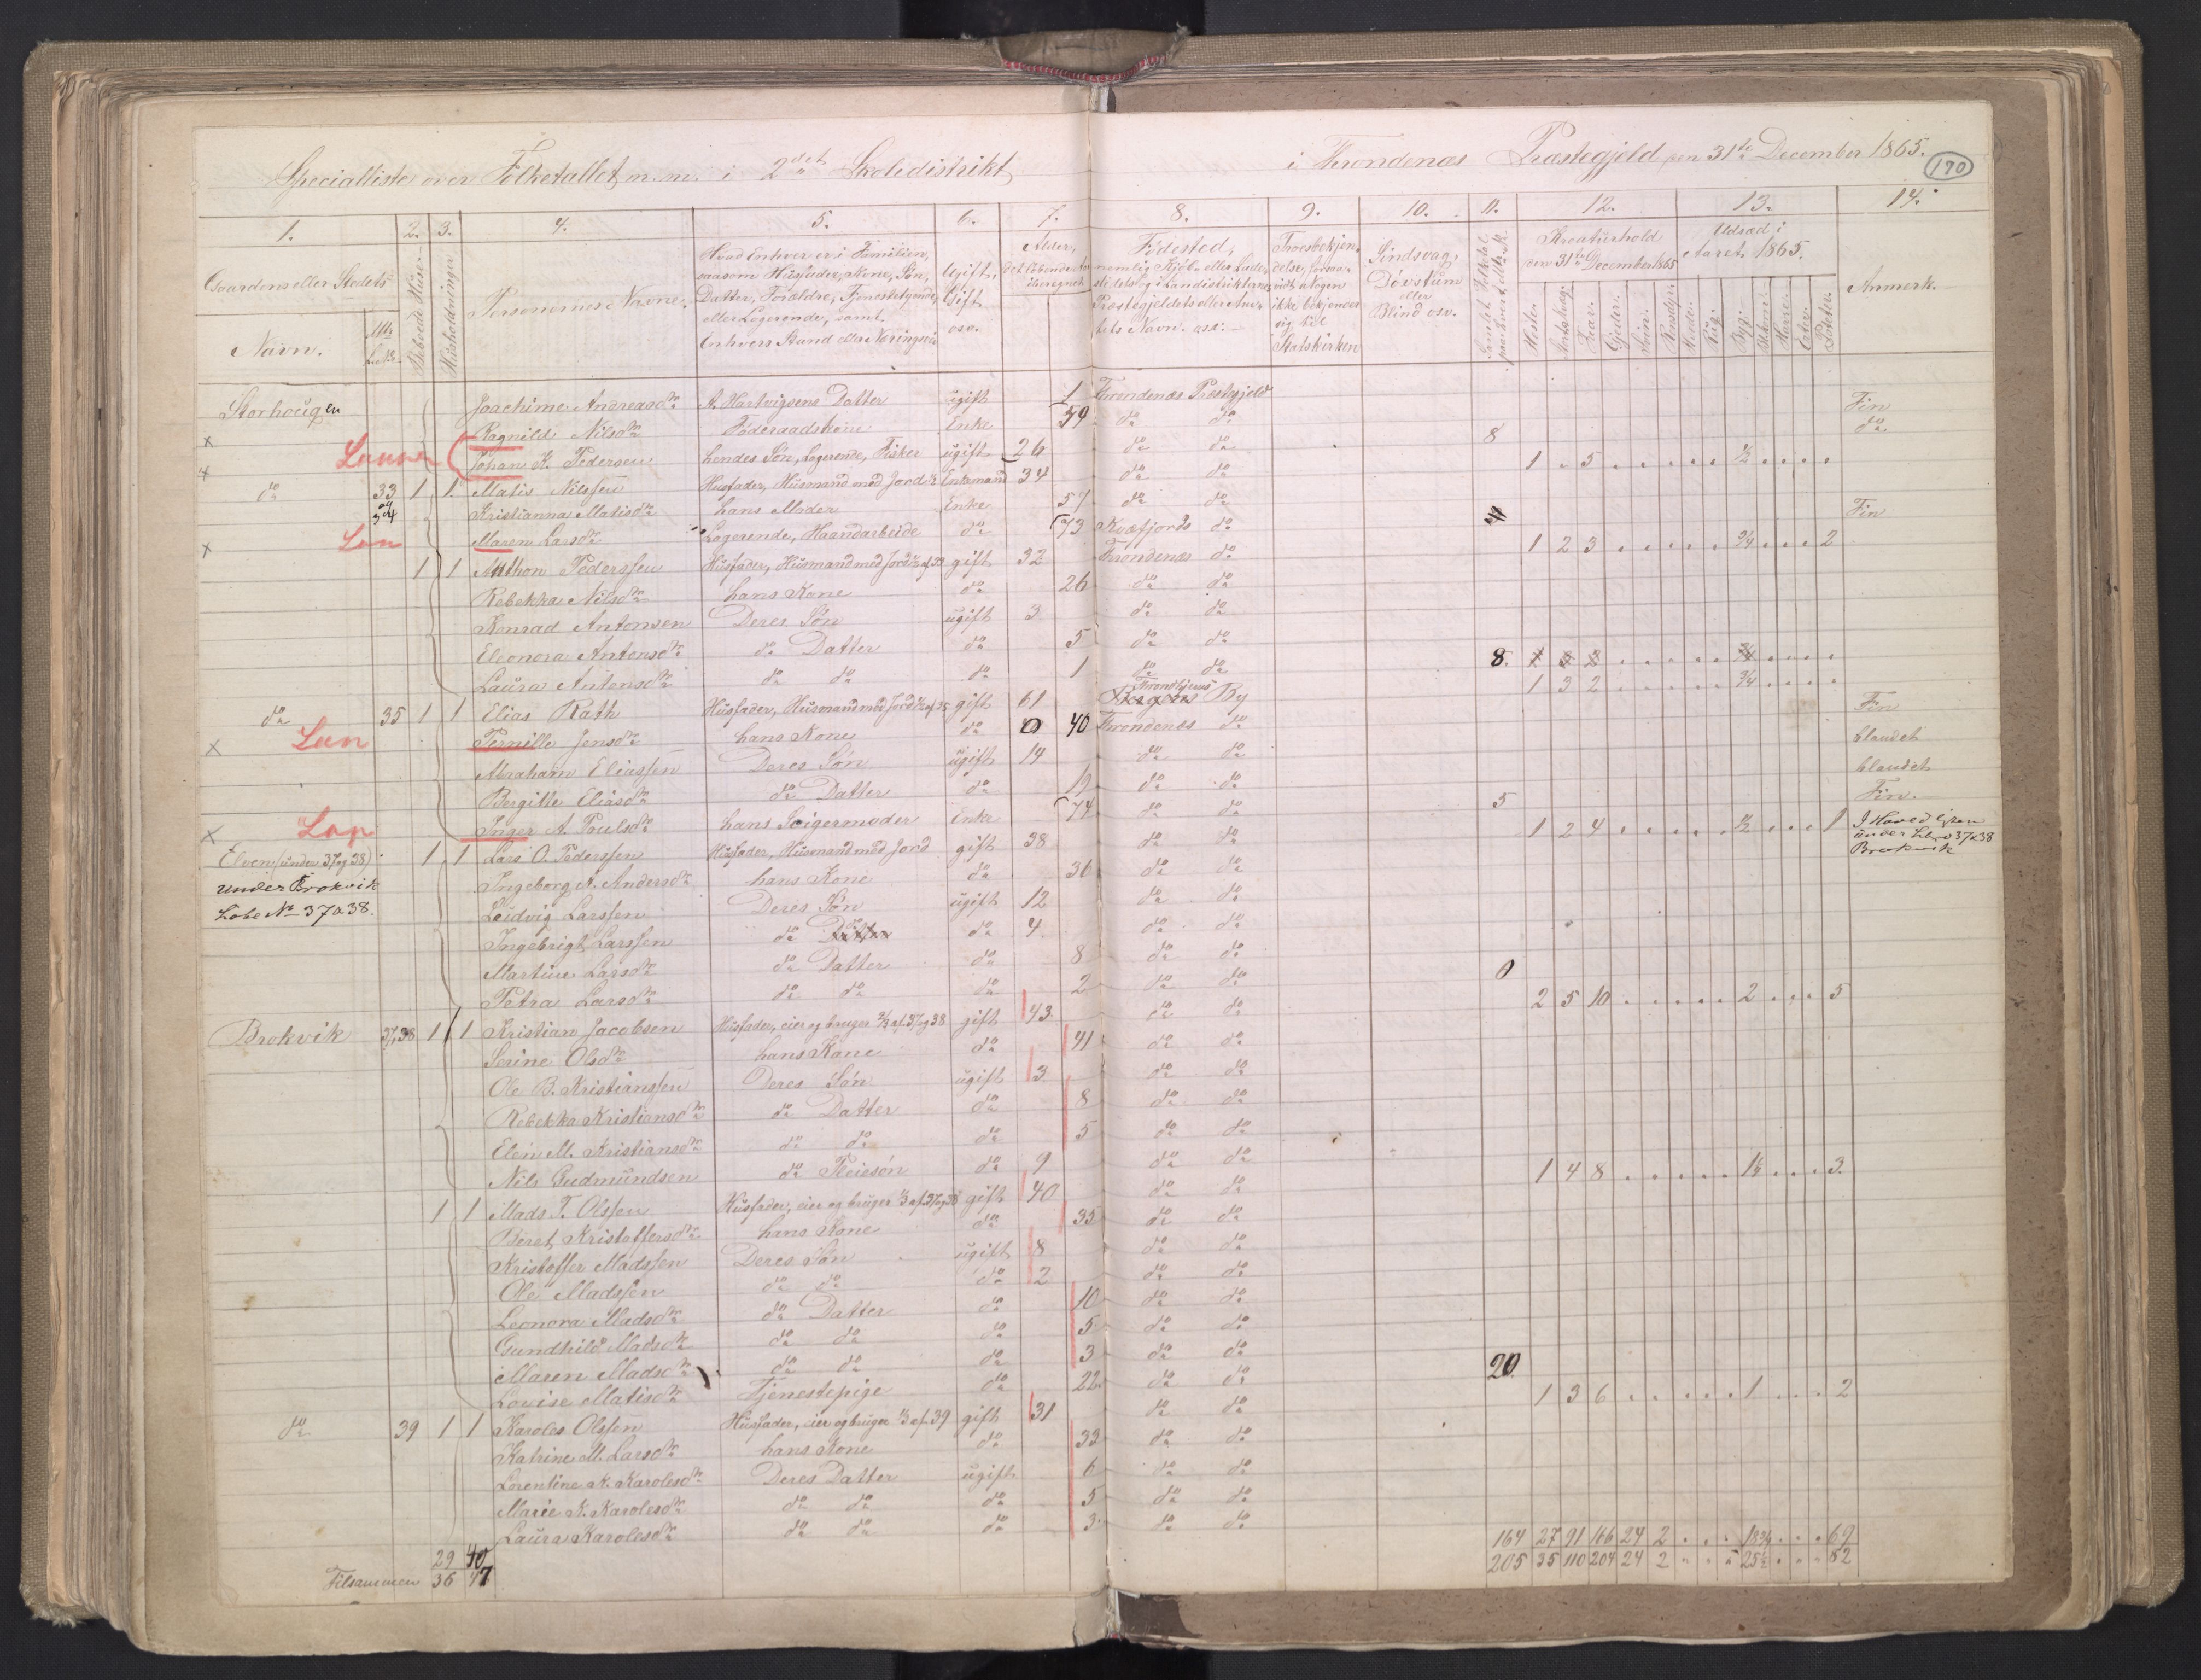 Specialliste over Folketallet m. m. i 2det Skoledistrikt i Throndenæs Præstegjeld den 31te December 1865.
170
1. 2. 3. 4. 5. 6. 7. 8. 9. 10. 11. 12. 13. 14.
Gaardens eller Stedets
Navn.
Mtr. LNr.
Beboede Huse.
Husholdninger.
Personernes Navne.
Hvad Enhver er i Familien,
saasom Husfader, Kone, Søn,
Datter, Forældre, Tjenestetyende
eller Logerende, samt
Enhvers Stand eller Næringsvei
Ugift,
Gift
osv.
Alder,
det løbende Aar
iberegnet
Fødested,
nemlig Kjøb- eller Lade-
sted og i Landdistrikterne
Præstegjeldets eller Am-
tets Navn. osv.
Troesbekjen-
delse, forsaa-
vidt Nogen
ikke bekjender
sig til
Statskirken
Sindsvag,
Døvstum
eller
Blind osv.
Kreaturhold
den 31te December 1865
Udsæd i
Aaret 1865.
Anmerk.
Heste. Storfæ. Faar. Gjeder. Sviin. Rensdyr. Hvede. Rug. Byg. Havre. Erter. Poteter.
Storhougen Joachime Andreasdtr A. Hartvigsens Datter ugift 1 Throndenæs Præstegjeld
Ragnild Nilsdtr Føderaadskone Enke 59 do do Fin
Lanner Johan K. Pedersen hendes Søn, Logerende, Fisker ugift 26 do do 8 do
do 33 1 1 Matis Nilssen Husfader, Husmand med Jord Enkemand 34 do do 1 . 5 ½
og 34 Kristianna Matisdtr hans Moder Enke 57 do do
Lan Maren Larsdtr Logerende, Haandarbeide do 73 Kvæfjords do Fin
1 1 Anthon Pederssen Husfader, Husmand med Jord ½ af 33 gift 32 Throndenæs do 1 2 3 ¾ 2
Rebekka Nilsdtr hans Kone do 26 do do
Konrad Antonsen Deres Søn ugift 3 do do
Eleonora Antonsdtr do Datter do 5 do do
Laura Antonsdtr do do do 1 do do 8.
do 35 1 1 Elias Rath Husfader, Husmand med Jord ½ af 35 gift 61 Trondhjems By 1 3 2 ¾
Lan Pernille Jensdtr hans Kone do 40 Throndenæs do Fin
Abraham Eliassen Deres Søn ugift 14 do do blandet
Bergitte Eliasdtr do Datter do 19 do do blandet
Lap Inger A. Poulsdtr hans Svigermoder Enke 74 do do 5 Fin.
Elven (under 37 og 38) 1 1 Lars O. Pederssen Husfader, Husmand med Jord gift 38 do do 1 2 4 ½ 1 I Hovedlisten
under Brokvik Ingeborg A. Andersdtr hans Kone do 36 do do under Lbno 37 & 38
Lobe No 37 a 38. Ludvig Larssen Deres Søn ugift 12 do do Brokvik
Ingebrigt Larssen do do do 4 do do
Martine Larsdtr do Datter do 8 do do
Petra Larsdtr do do do 2 do do 0
Brokvik 37, 38 1 1 Kristian Jacobsen Husfader, eier og bruger ⅔ af 37 og 38 gift 43 do do 2 5 10 2 5
Serine Olsdtr hans Kone do 41 do do
Ole B. Kristianssen Deres Søn ugift 3 do do
Rebekka Kristiansdtr do Datter do 8 do do
Elen M. Kristiansdtr do do do 5 do do
Nils Gudmundsen do Pleiesøn do 9 do do
1 1 Mads T. Olssen Husfader, eier og bruger ⅓ af 37 og 38 gift 40 do do 1 4 8 1½ 3.
Beret Kristoffersdtr hans Kone do 35 do do
Kristoffer Madssen Deres Søn ugift 8 do do
Ole Madssen do do do 2 do do
Leonora Madsdtr do Datter do 10 do do
Gundhild Madsdtr do do do 5 do do
Maren Madsdtr do do do 3 do do
Lovise Matisdtr Tjenestepige do 22 do do 20.
do 39 1 1 Karoles Olssen Husfader, eier og bruger ⅓ af 39 gift 31 do do 1 3 6 1 2
Katrine M. Larsdtr hans Kone do 33 do do
Lorentine K. Karolesdtr Deres Datter ugift 6 do do
Marie K. Karolesdtr do do do 5 do do
Laura Karolesdtr do do do 3 do do
29 40 164 27 91 166 24 2 18¾ 69
Tilsammen 36 47 205 35 110 204 24 2 25½ 82